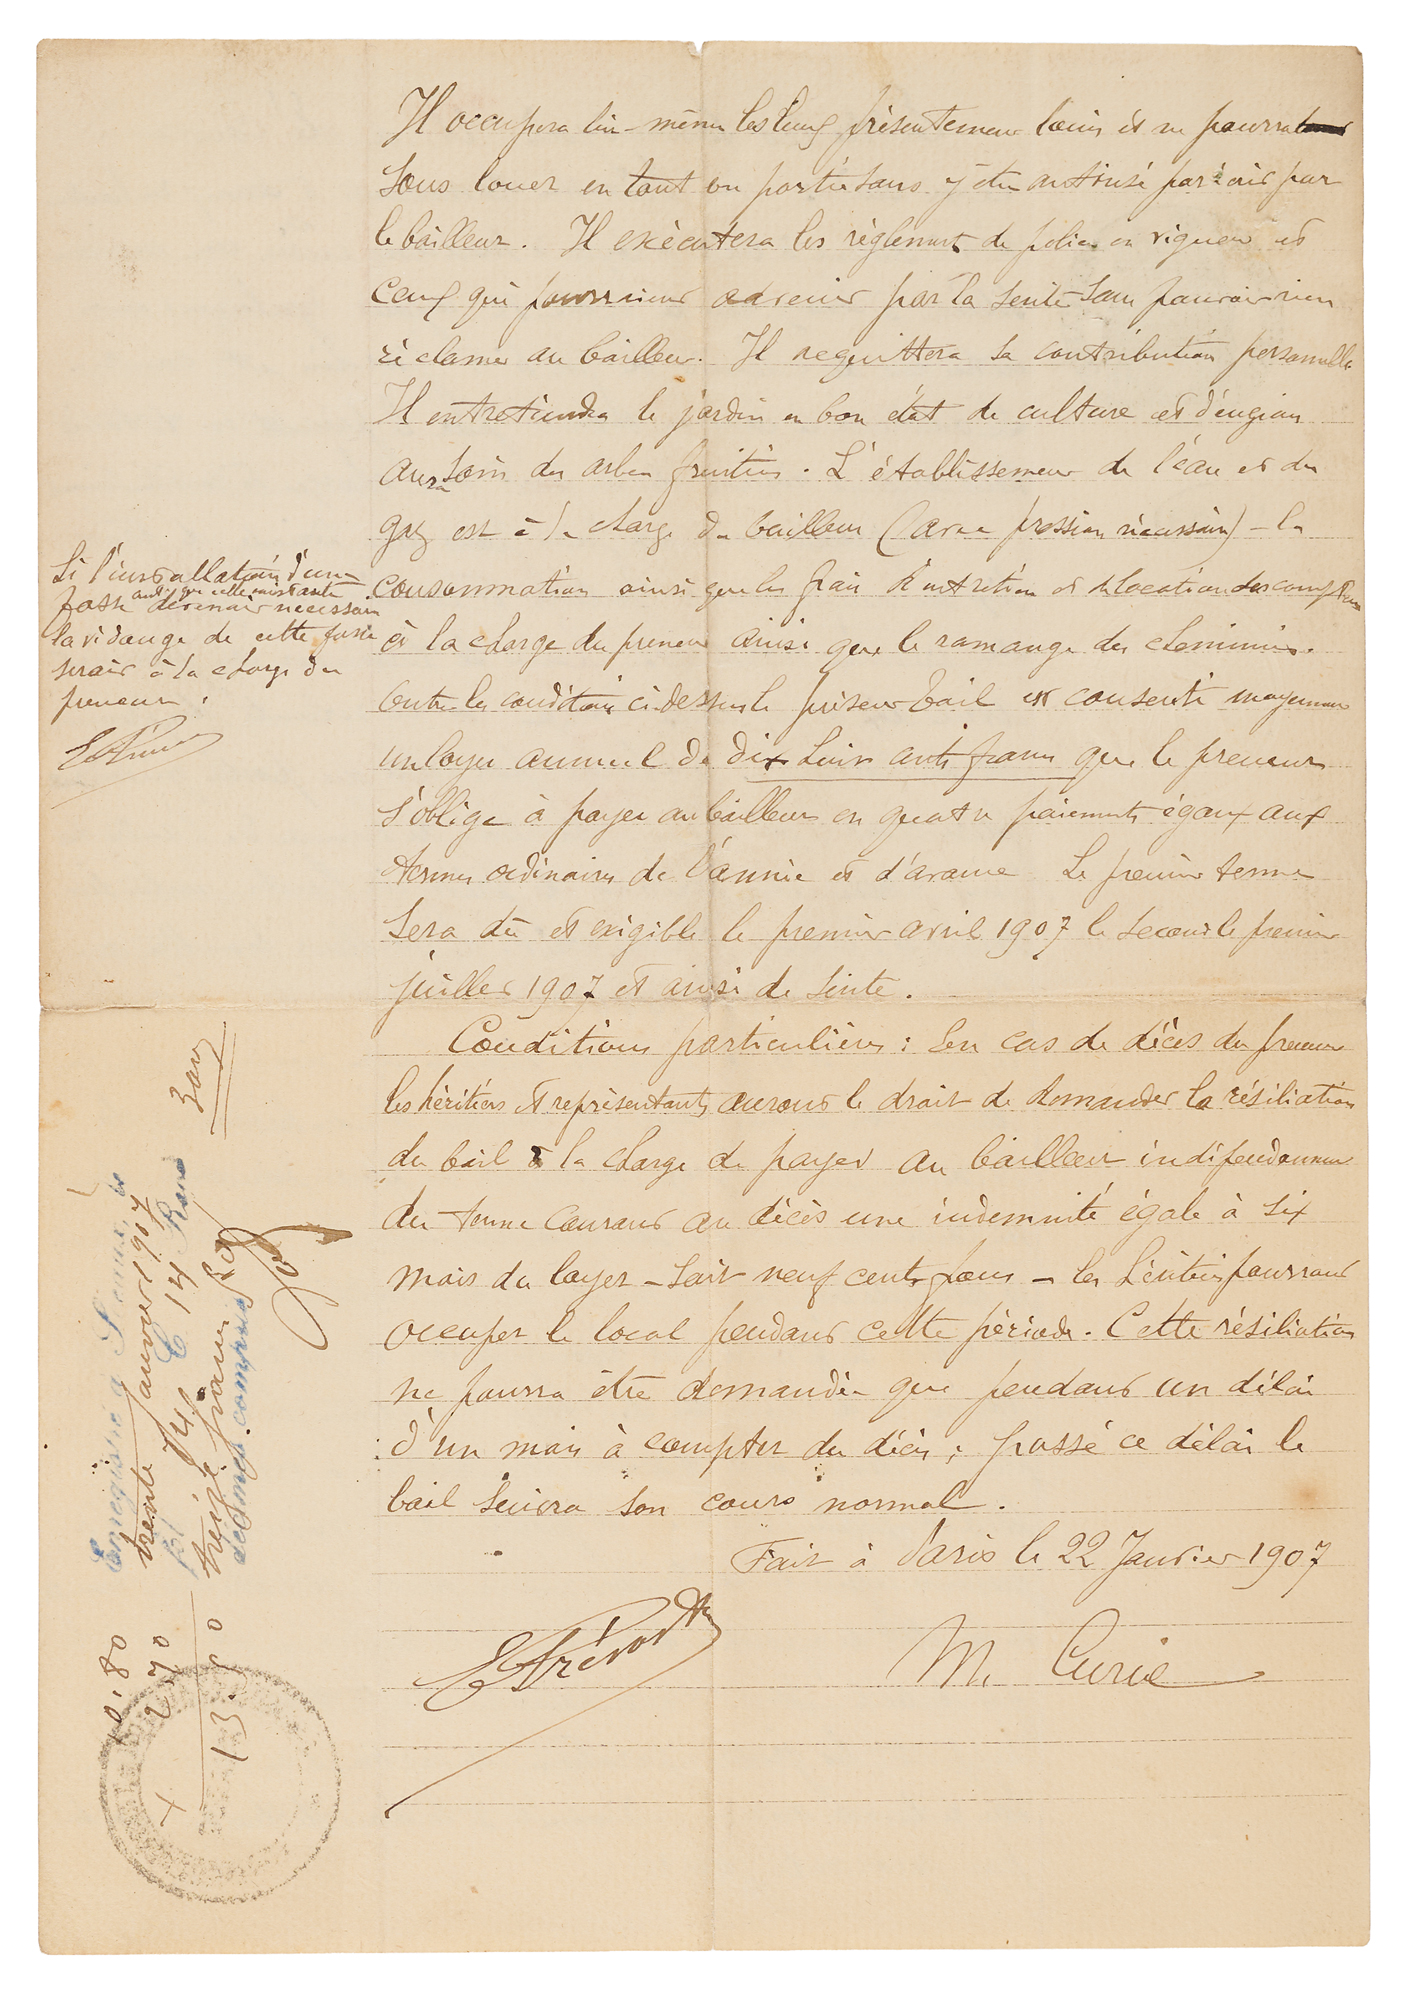 Il occupera lui-même les lieux présentement loués et ne pourra
sous louer en tout ou partie sans y être autorisé par écrit par
le bailleur. Il exécutera les règlements de police en vigueur et
ceux qui pourraient advenir par la suite sans pouvoir rien
réclamer au bailleur. Il acquittera sa contribution personnelle
Il entretiendra le jardin en bon état de culture et
aura soin des arbres fruitiers. L'établissement de l'eau et du
gaz est à la charge du bailleur (avec pression nécessaire) - la
consommation ainsi que les frais d'entretien et de location des compteurs
à la charge du preneur ainsi que le ramonage des cheminées.
Outre les conditions ci dessus le présent bail est consenti moyennant
un loyer annuel de dix huit cents francs que le preneur
s'oblige à payer au bailleur en quatre paiements égaux aux
termes ordinaires de l'année et d'avance Le premier terme
sera dû et exigible le premier avril 1907 le second le premier
juillet 1907 et ainsi de suite.
Conditions particulières : En cas de décès du preneur
les héritiers et représentants auront le droit de demander la résiliation
du bail à la charge de payer au bailleur indépendamment
du terme courant au décès une indemnité égale à six
mois de loyer - soit neuf cents francs - les héritiers pourront
occuper le local pendant cette période. Cette résiliation
ne pourra être demandée que pendant un délai
d'un mois à compter du décès ; passé ce délai le
bail suivra son cours normal.
Fait à Paris le 22 Janvier 1907
M. Curie
Si l'installation d'une
fosse devenait nécessaire
la vidange de cette fosse
serait à la charge du
preneur.
Enregistré à Sceaux
trente janvier 1907
treize francs
décimes compris
0.80
2 70
13.50